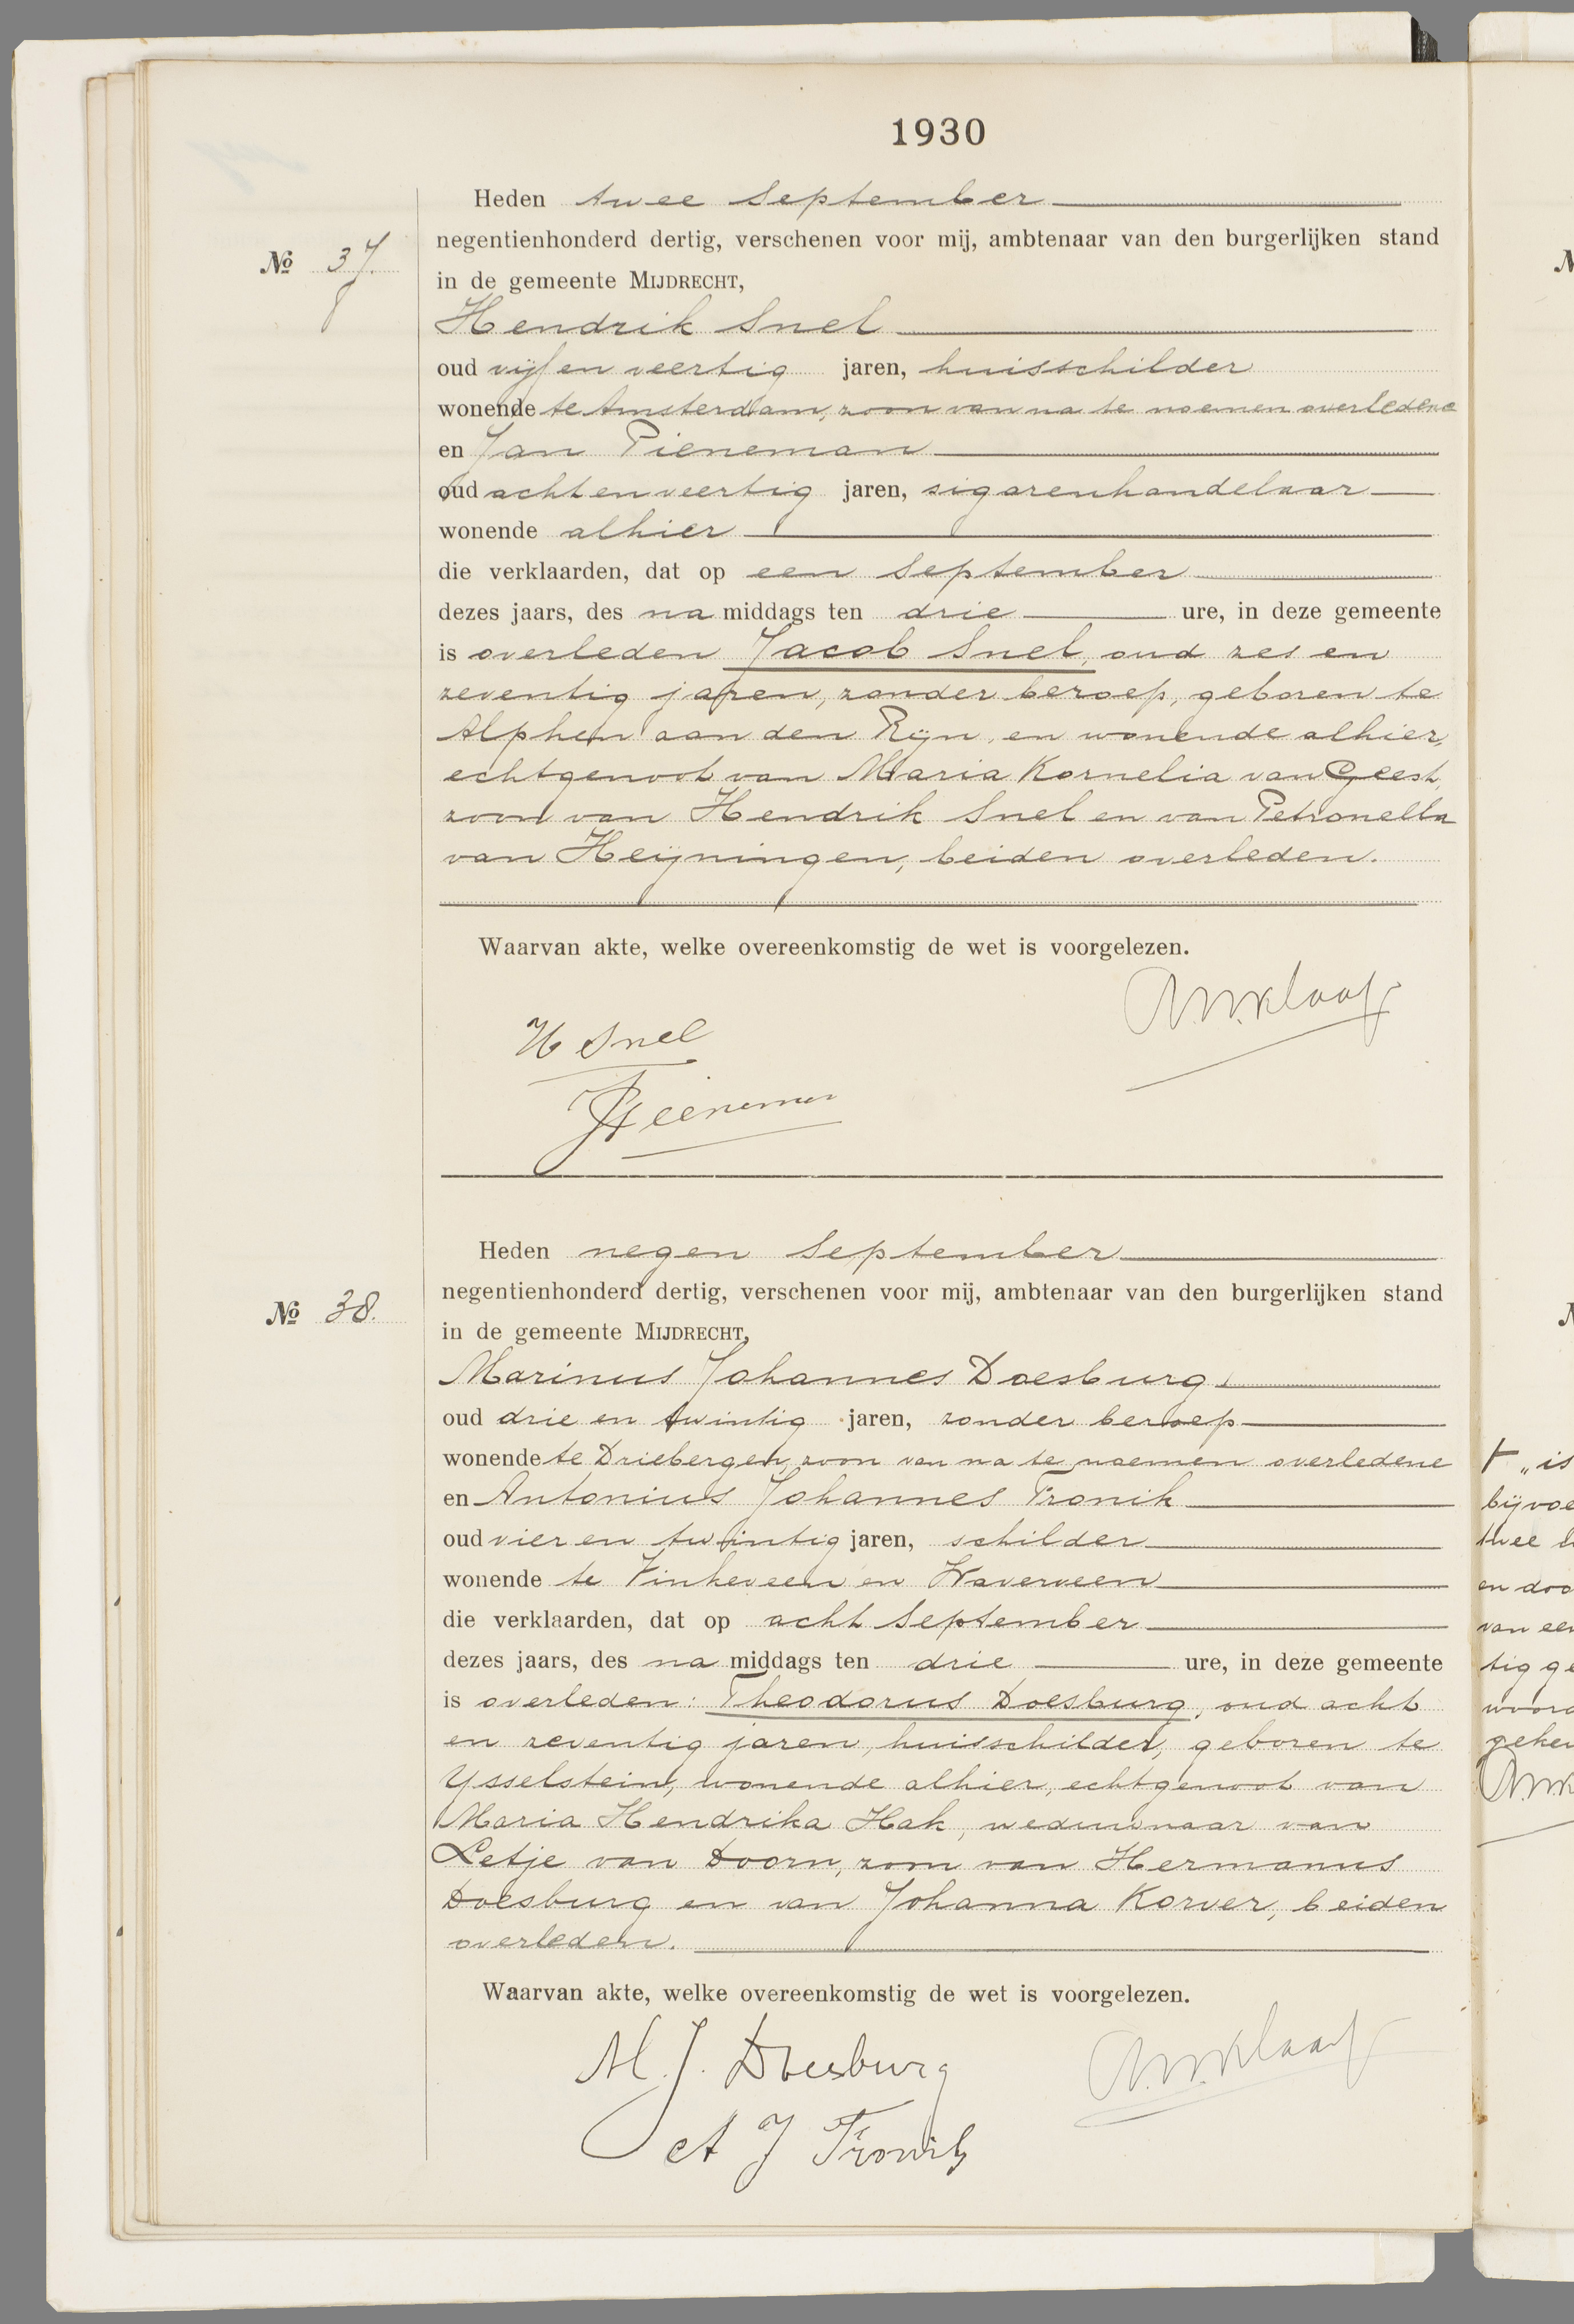 1930
Heden twee September
negentienhonderd dertig, verschenen voor mij, ambtenaar van den burgerlijken stand
No 37.
in de gemeente MIJDRECHT,
Hendrik Snel
oud vijf en veertig jaren, huisschilder
wonende te Amsterdam, zoon van na te noemen overledene
en Jan Pieneman
oud acht en veertig jaren, sigarenhandelaar
wonende alhier
die verklaarden, dat op een September
dezes jaars, des na middags ten drie ure, in deze gemeente
is overleden Jacob Snel, oud zes en
zeventig jaren, zonder beroep, geboren te
Alphen aan den Rijn, en wonende alhier,
echtgenoot van Maria Kornelia van Geest,
zoon van Hendrik Snel en van Petronella
van Heijningen, beiden overleden.
Waarvan akte, welke overeenkomstig de wet is voorgelezen.
H Snel
Heden negen September
negentienhonderd dertig, verschenen voor mij, ambtenaar van den burgerlijken stand
No 38.
in de gemeente MIJDRECHT,
Marinus Johannes Doesburg,
oud drie en twintig jaren, zonder beroep
wonende te Driebergen, zoon van na te noemen overledene
en Antonius Johannes Tronik
oud vier en twintig jaren, schilder
wonende te Vinkeveen en Waverveen
die verklaarden, dat op acht September
dezes jaars, des na middags ten drie ure, in deze gemeente
is overleden: Theodorus Doesburg, oud acht
en zeventig jaren, huisschilder, geboren te
Ysselstein, wonende alhier, echtgenoot van
Maria Hendrika Hak, weduwnaar van
Letje van Doorn, zoon van Hermanus
Doesburg en van Johanna Korver, beiden
overleden.
Waarvan akte, welke overeenkomstig de wet is voorgelezen.
M. J. Doesburg
A J Tronik